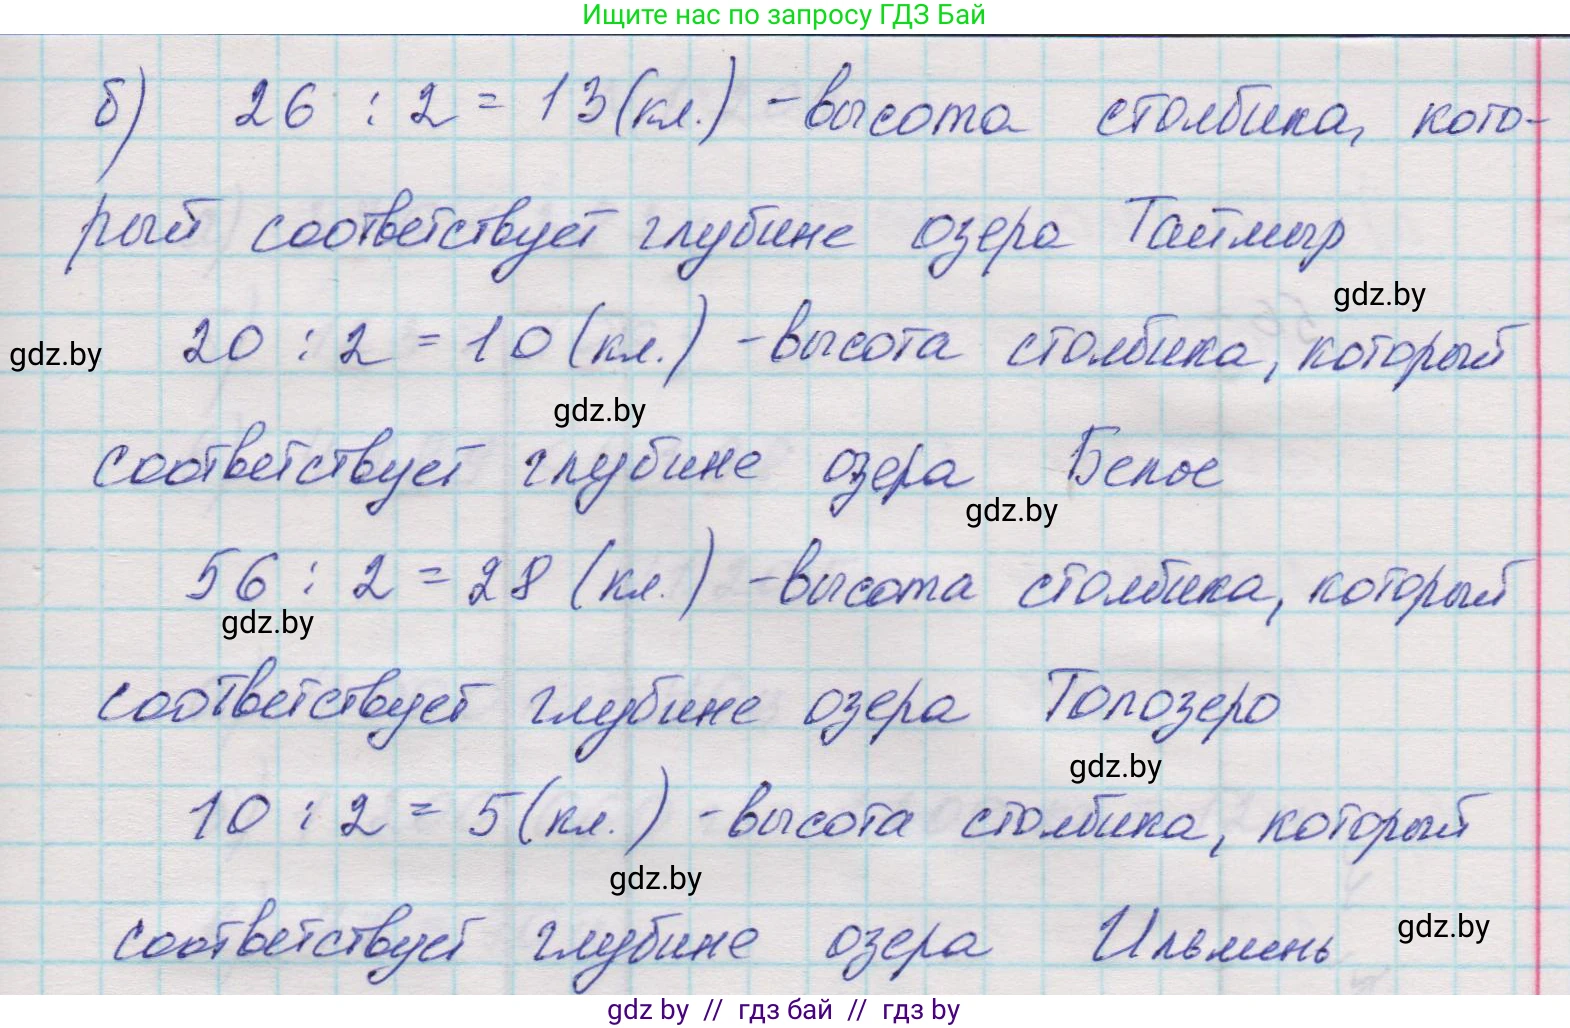 Ищите нас по запросу ГДЗ Бай
б) 26 : 2 = 13 (кл.) - высота столбика, кото-
рый соответствует глубине озера Таймыр
gdz.by
20 : 2 = 10 (кл.) - высота столбика, который
gdz.by
gdz.by
соответствует глубине озера Белое
gdz.by
56 : 2 = 28 (кл.) - высота столбика, который
gdz.by
соответствует глубине озера Топозеро
gdz.by
10 : 2 = 5 (кл.) - высота столбика, который
gdz.by
соответствует глубине озера Ильмень
gdz.by
gdz by // гдз бай // гдз by